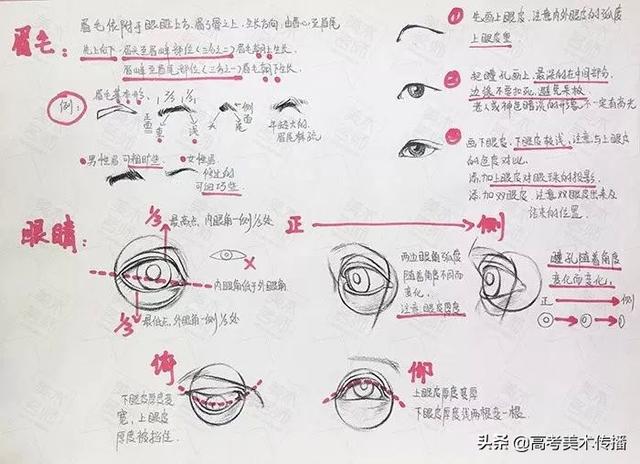 眉毛:
眉毛依附于眼眶上方,眉弓骨之上,生长方向,由眉心至眉尾
先上向下:眉头至眉峰部位(三分之二)眉毛朝上生长.
眉峰至眉尾部位(三分之一)眉毛朝下生长.
例:
眉毛基本形,
正面
重
浅
头
侧面
尾
年龄大的.
男性眉可粗犷些.
女性眉
修长的
可細巧些.
①
先画上眼皮.注意内外眼皮的弧度
上眼皮重
②
把瞳孔画上.最深的在中间部分,
边缘不要扣死.避免呆板.
老人或神色暗淡的形象,不一定有高光
③
画下眼皮.下眼皮较浅.注意与上眼皮
的色度对比.
添加上眼皮对眼球的投影.
添加双眼皮.注意双眼皮出来及
结束的位置.
眼睛:
1/3
最高点.内眼角一侧1/3处
内眼角低于外眼角
1/3
最低点.外眼角一侧1/3处
正
侧
两边眼角弧度
随着角度不同而
变化.
注意眼皮厚度
瞳孔随着角度
变化而变化.
正
侧
俯
下眼皮厚度变
宽,上眼皮
厚度被挡住.
仰
上眼皮厚度
下眼皮厚度线
头条 @高考美术传播